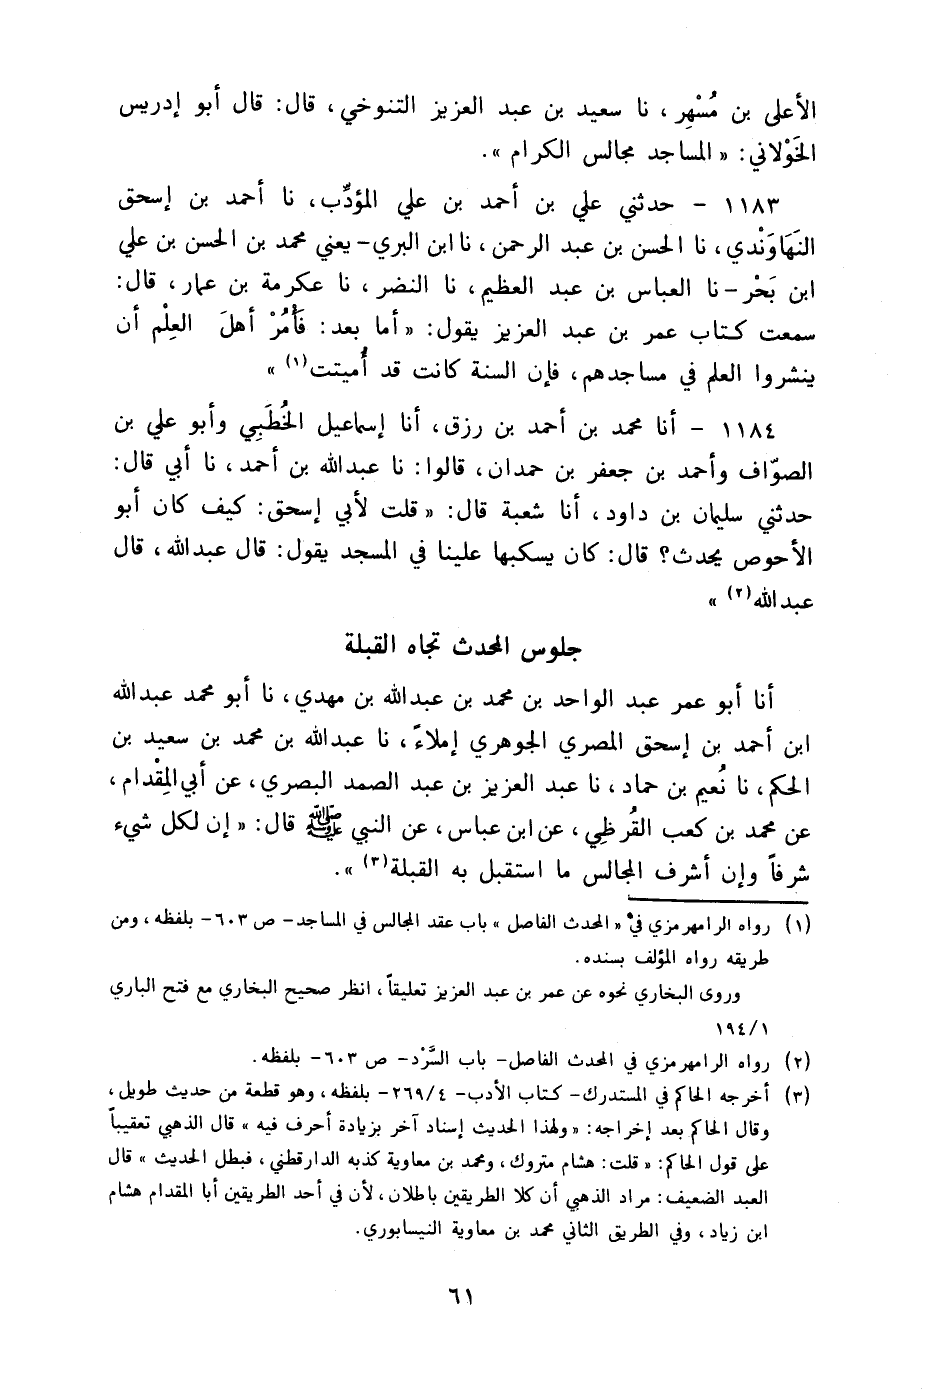 الأعلى بن مُسْهِر ، نا سعيد بن عبد العزيز التنوخي ، قال : قال أبو إدريس
الخَوْلاني : « المساجد مجالس الكرام » .
١١٨٣ - حدثني علي بن أحمد بن علي المؤدِّب ، نا أحمد بن إسحق
النَهَاوَنْدي ، نا الحسن بن عبد الرحمن ، نا ابن البري - يعني محمد بن الحسن بن علي
ابن بَحْر - نا العباس بن عبد العظيم ، نا النضر ، نا عكرمة بن عمار ، قال :
سمعت كتاب عمر بن عبد العزيز يقول : « أما بعد : فَأْمُرْ أهلَ العِلْم أن
ينشروا العلم في مساجدهم ، فإن السنة كانت قد أُميتت (١) »
١١٨٤ - أنا محمد بن أحمد بن رزق ، أنا إسماعيل الخُطَبِي وأبو علي بن
الصوّاف وأحمد بن جعفر بن حمدان ، قالوا : نا عبدالله بن أحمد ، نا أبي قال :
حدثني سليمان بن داود ، أنا شعبة قال : « قلت لأبي إسحق : كيف كان أبو
الأحوص يحدث ؟ قال : كان يسكبها علينا في المسجد يقول : قال عبدالله ، قال
عبدالله (٢) »
جلوس المحدث تجاه القبلة
أنا أبو عمر عبد الواحد بن محمد بن عبدالله بن مهدي ، نا أبو محمد عبدالله
ابن أحمد بن إسحق المصري الجوهري إملاءً ، نا عبدالله بن محمد بن سعيد بن
الحكم ، نا نُعيم بن حماد ، نا عبد العزيز بن عبد الصمد البصري ، عن أبي المِقْدام ،
عن محمد بن كعب القُرظِي ، عن ابن عباس ، عن النبي ﷺ قال : « إن لكل شيء
شرفاً وإن أشرف المجالس ما استقبل به القبلة (٣) » .
(١) رواه الرامهرمزي في « المحدث الفاصل » باب عقد المجالس في المساجد - ص ٦٠٣ - بلفظه ، ومن
طريقه رواه المؤلف بسنده .
وروى البخاري نحوه عن عمر بن عبد العزيز تعليقاً ، انظر صحيح البخاري مع فتح الباري
١٩٤/١
(٢) رواه الرامهرمزي في المحدث الفاصل - باب السَّرْد - ص ٦٠٣ - بلفظه .
(٣) أخرجه الحاكم في المستدرك - كتاب الأدب - ٢٦٩/٤ - بلفظه ، وهو قطعة من حديث طويل ،
وقال الحاكم بعد إخراجه : « ولهذا الحديث إسناد آخر بزيادة أحرف فيه » قال الذهبي تعقيباً
على قول الحاكم : « قلت : هشام متروك ، ومحمد بن معاوية كذبه الدارقطني ، فبطل الحديث » قال
العبد الضعيف : مراد الذهبي أن كلا الطريقين باطلان ، لأن في أحد الطريقين أبا المقدام هشام
ابن زياد ، وفي الطريق الثاني محمد بن معاوية النيسابوري .
٦١